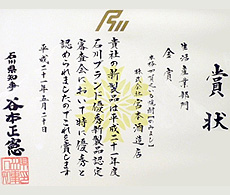 賞状
生活産業部門
金賞
株式会社宮本酒造店
貴社の新製品は平成二十一年度
石川ブランド優秀新製品認定
審査会において特に優秀と
認められましたのでこれを賞します
平成二十一年五月二十日
石川県知事
谷本正憲